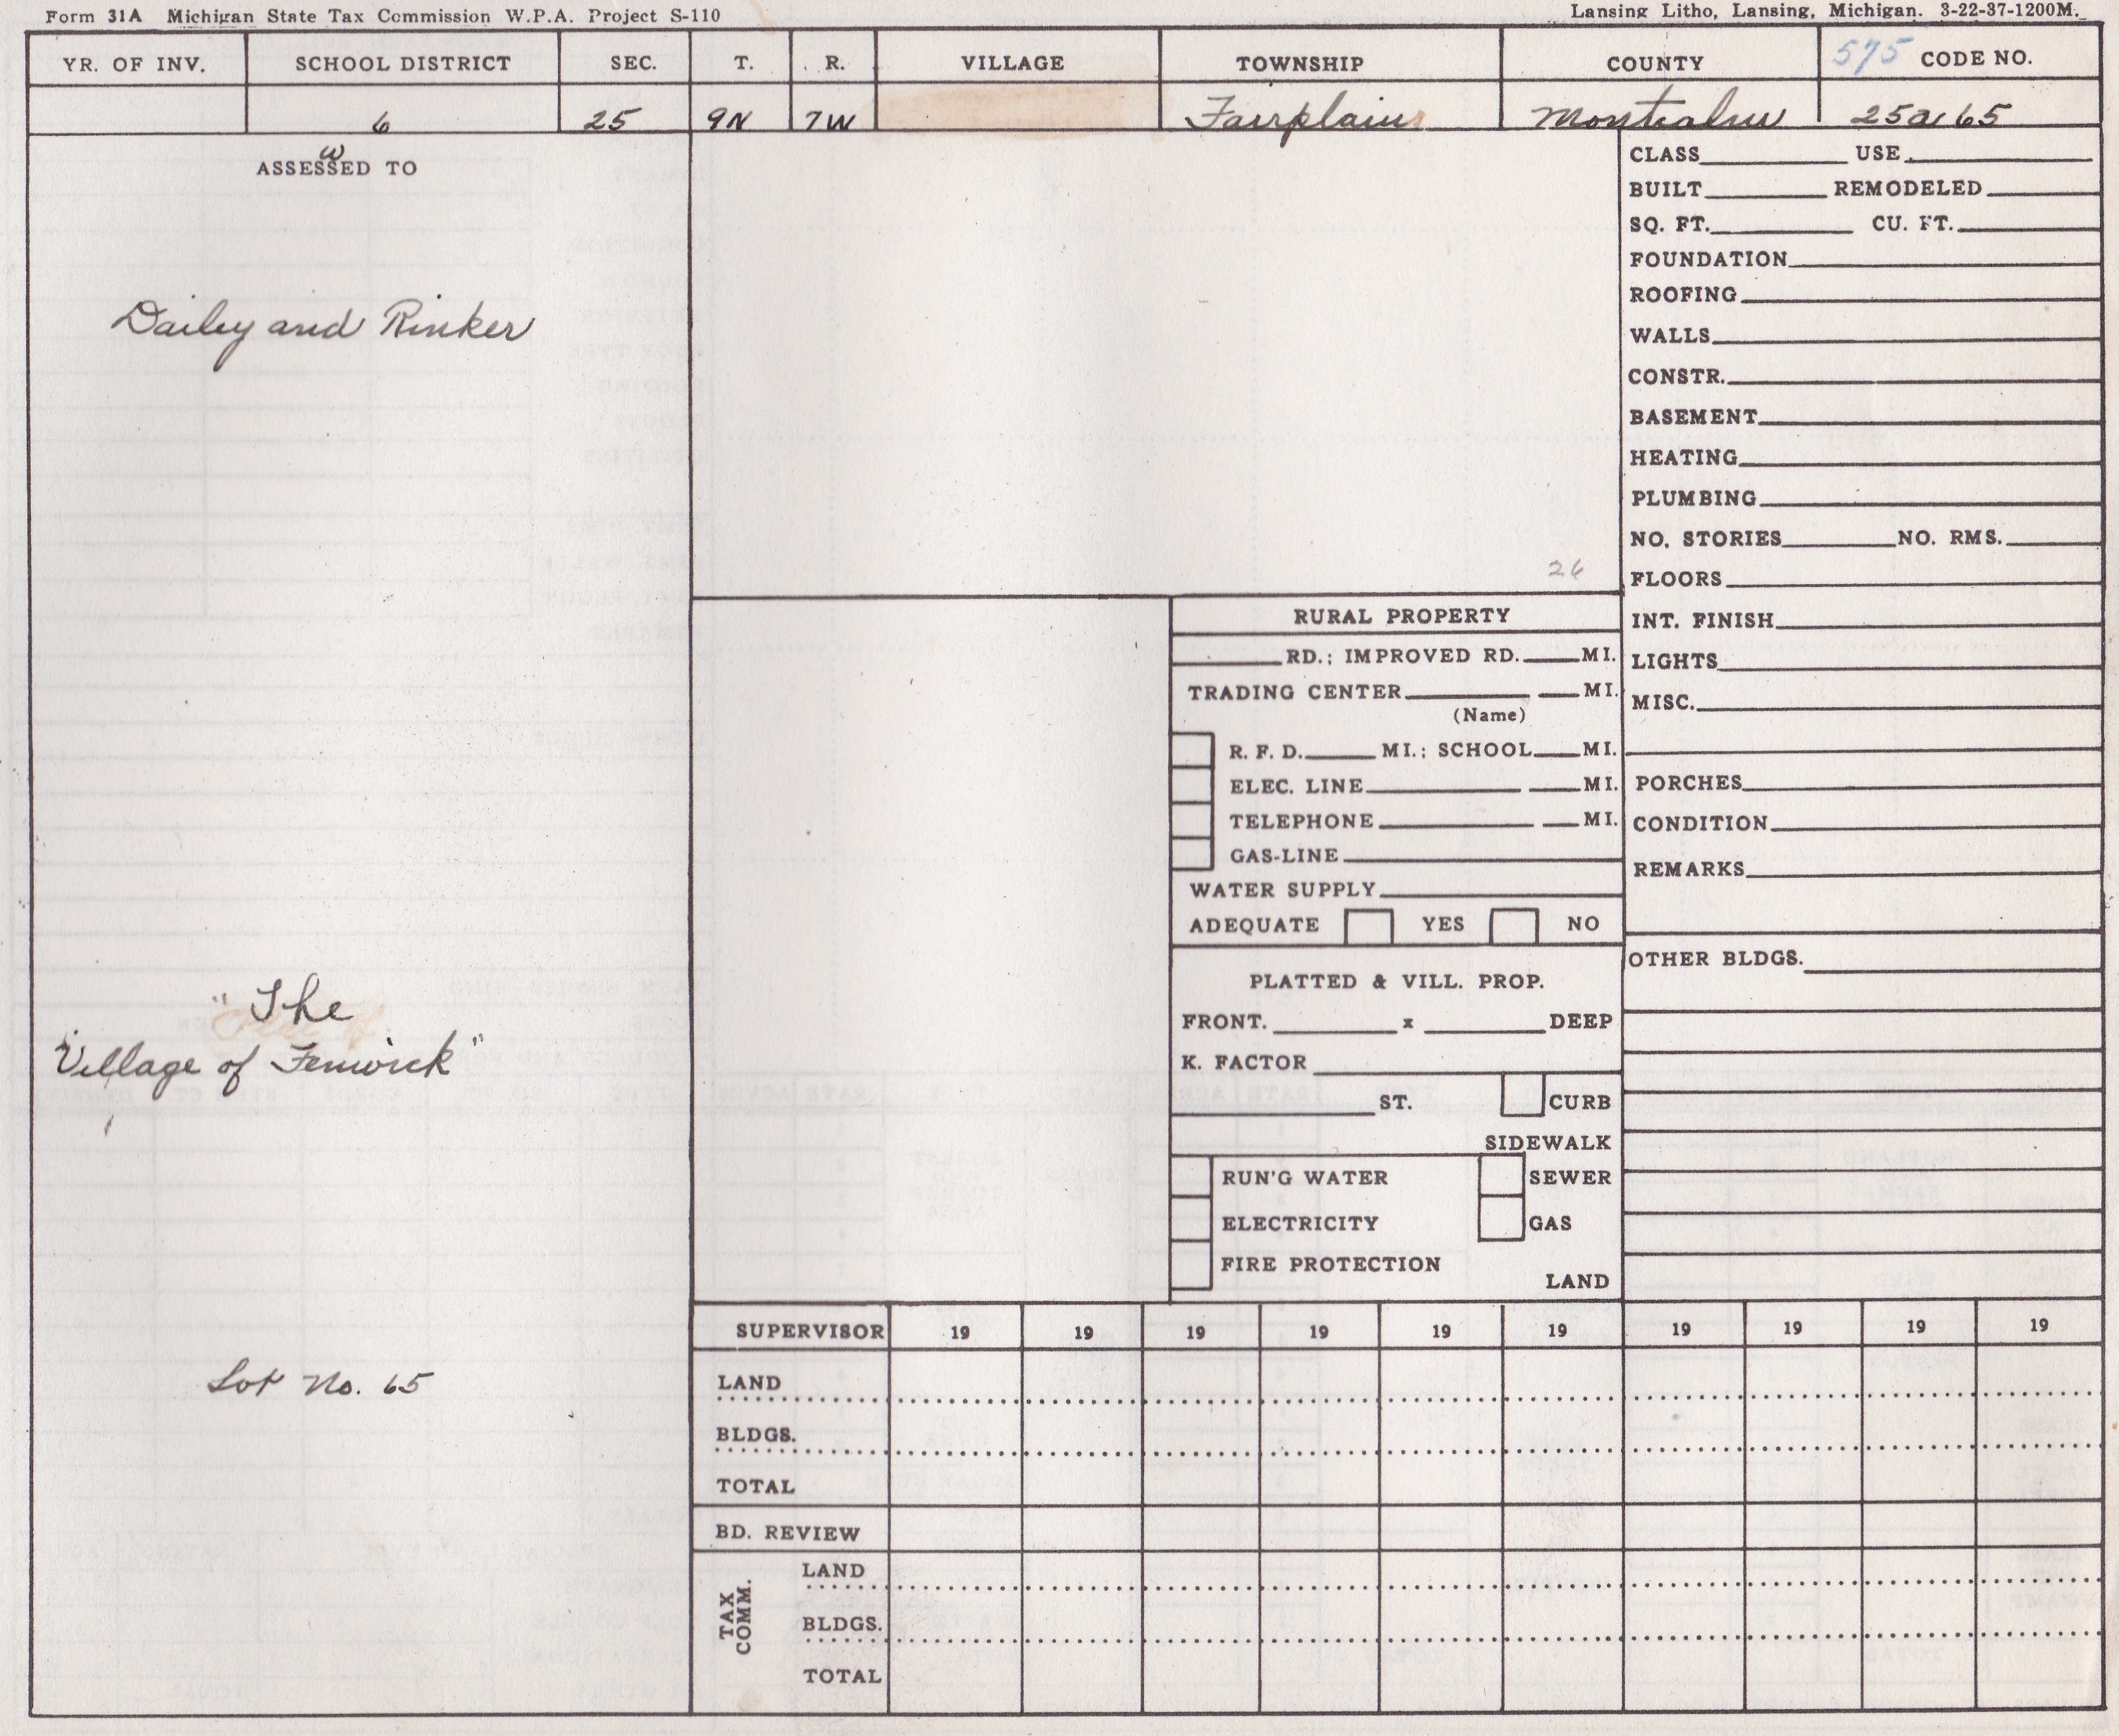 Form 31A Michigan State Tax Commission W.P.A. Project S-110
Lansing Litho, Lansing, Michigan. 3-22-37-1200M.
YR. OF INV. SCHOOL DISTRICT SEC. T. R. VILLAGE TOWNSHIP COUNTY 575 CODE NO.
6 25 9N 7W Fairplains Montcalm 25a 65
W
ASSESSED TO
Dailey and Rinker
"The
Village of Fenwick"
Lot No. 65
26
RURAL PROPERTY
RD.; IMPROVED RD. MI.
TRADING CENTER MI.
(Name)
R. F. D. MI.; SCHOOL MI.
ELEC. LINE MI.
TELEPHONE MI.
GAS-LINE
WATER SUPPLY
ADEQUATE YES NO
PLATTED & VILL. PROP.
FRONT. x DEEP
K. FACTOR
ST. CURB
SIDEWALK
RUN'G WATER SEWER
ELECTRICITY GAS
FIRE PROTECTION
LAND
CLASS USE
BUILT REMODELED
SQ. FT. CU. FT.
FOUNDATION
ROOFING
WALLS
CONSTR.
BASEMENT
HEATING
PLUMBING
NO. STORIES NO. RMS.
FLOORS
INT. FINISH
LIGHTS
MISC.
PORCHES
CONDITION
REMARKS
OTHER BLDGS.
SUPERVISOR 19 19 19 19 19 19 19 19 19 19
LAND
BLDGS.
TOTAL
BD. REVIEW
TAX COMM.
LAND
BLDGS.
TOTAL